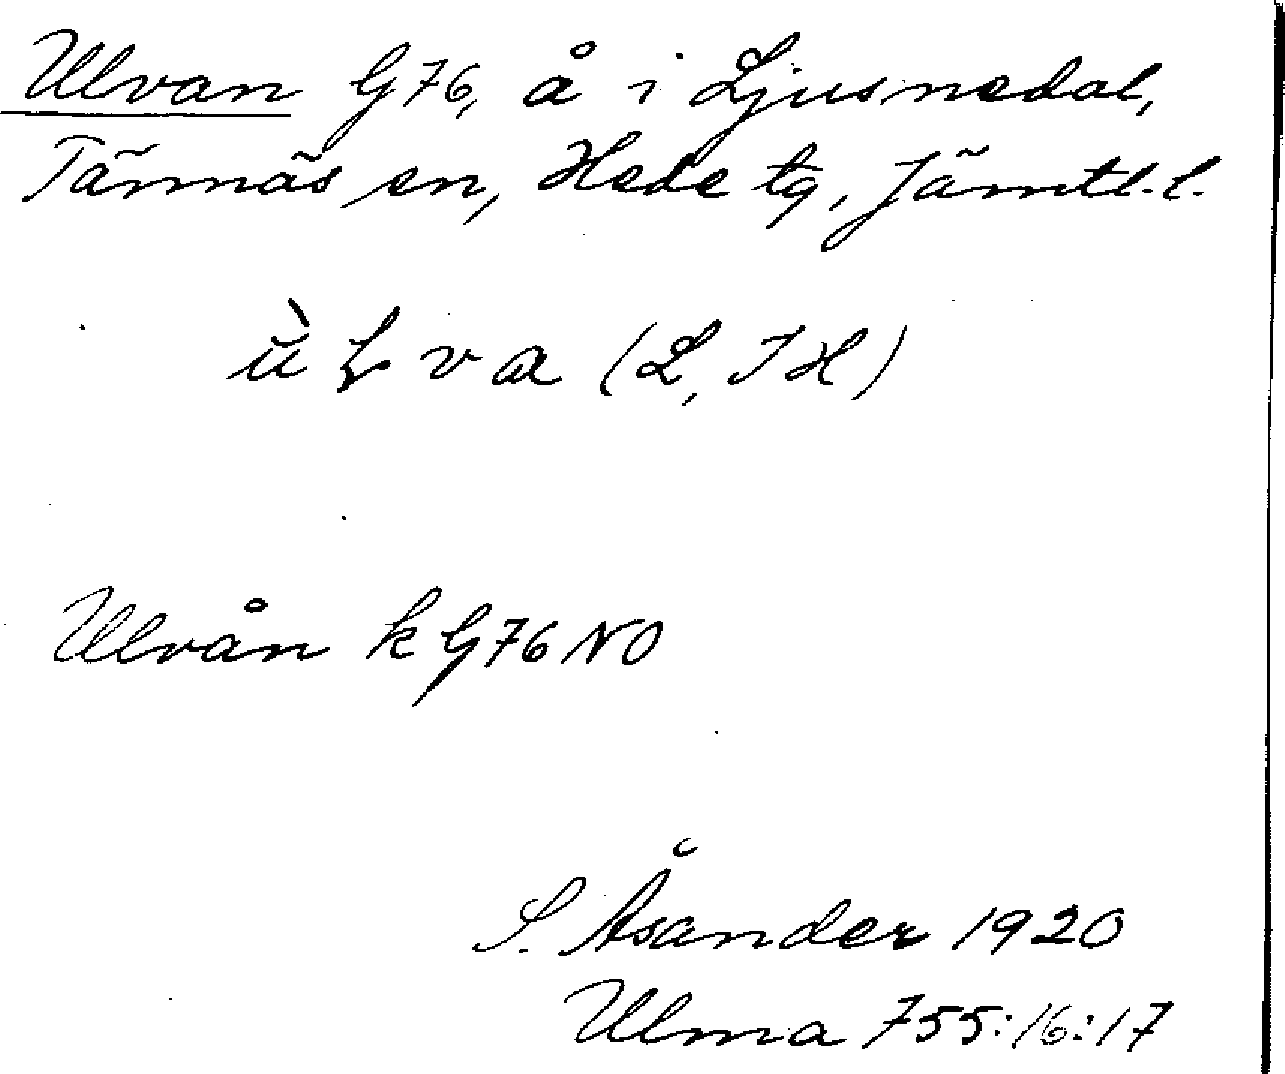 Ulvan G76, å i Ljusnedal,
Tännäs sn, Hede tg, Jämtl. l.
(L, JH)
Ulvån k G76 NO
S. Åsander 1920
Ulma 755:16:17